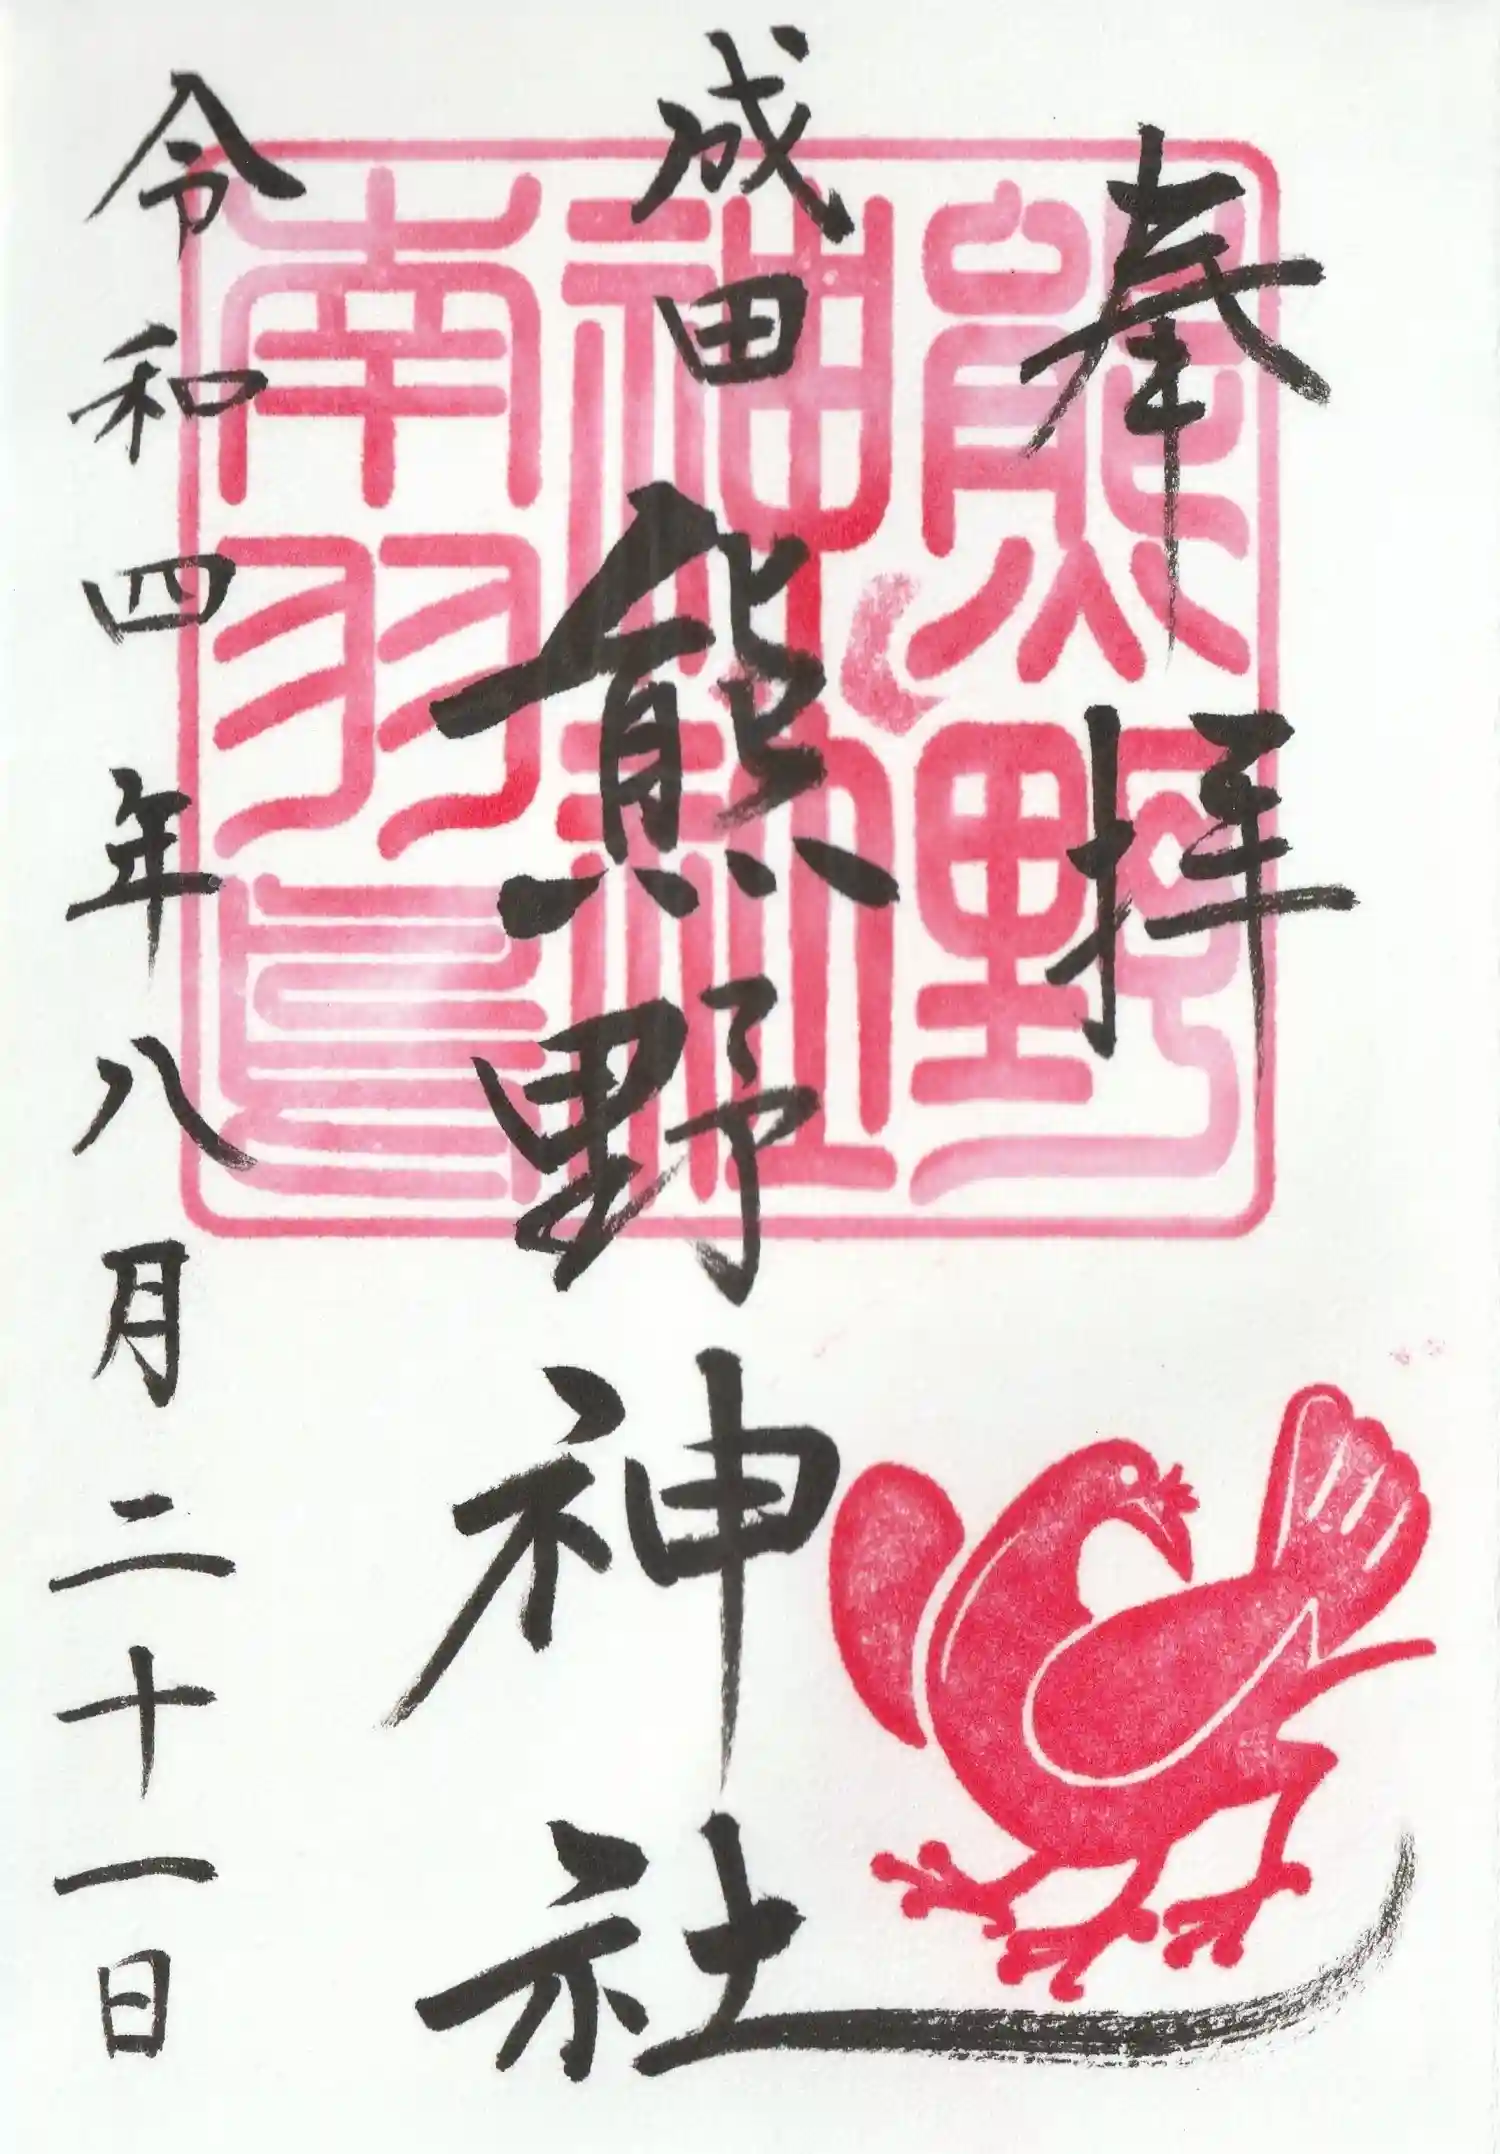 奉拝
熊野
神社
南羽鳥
成田
熊野神社
令和四年八月二十一日